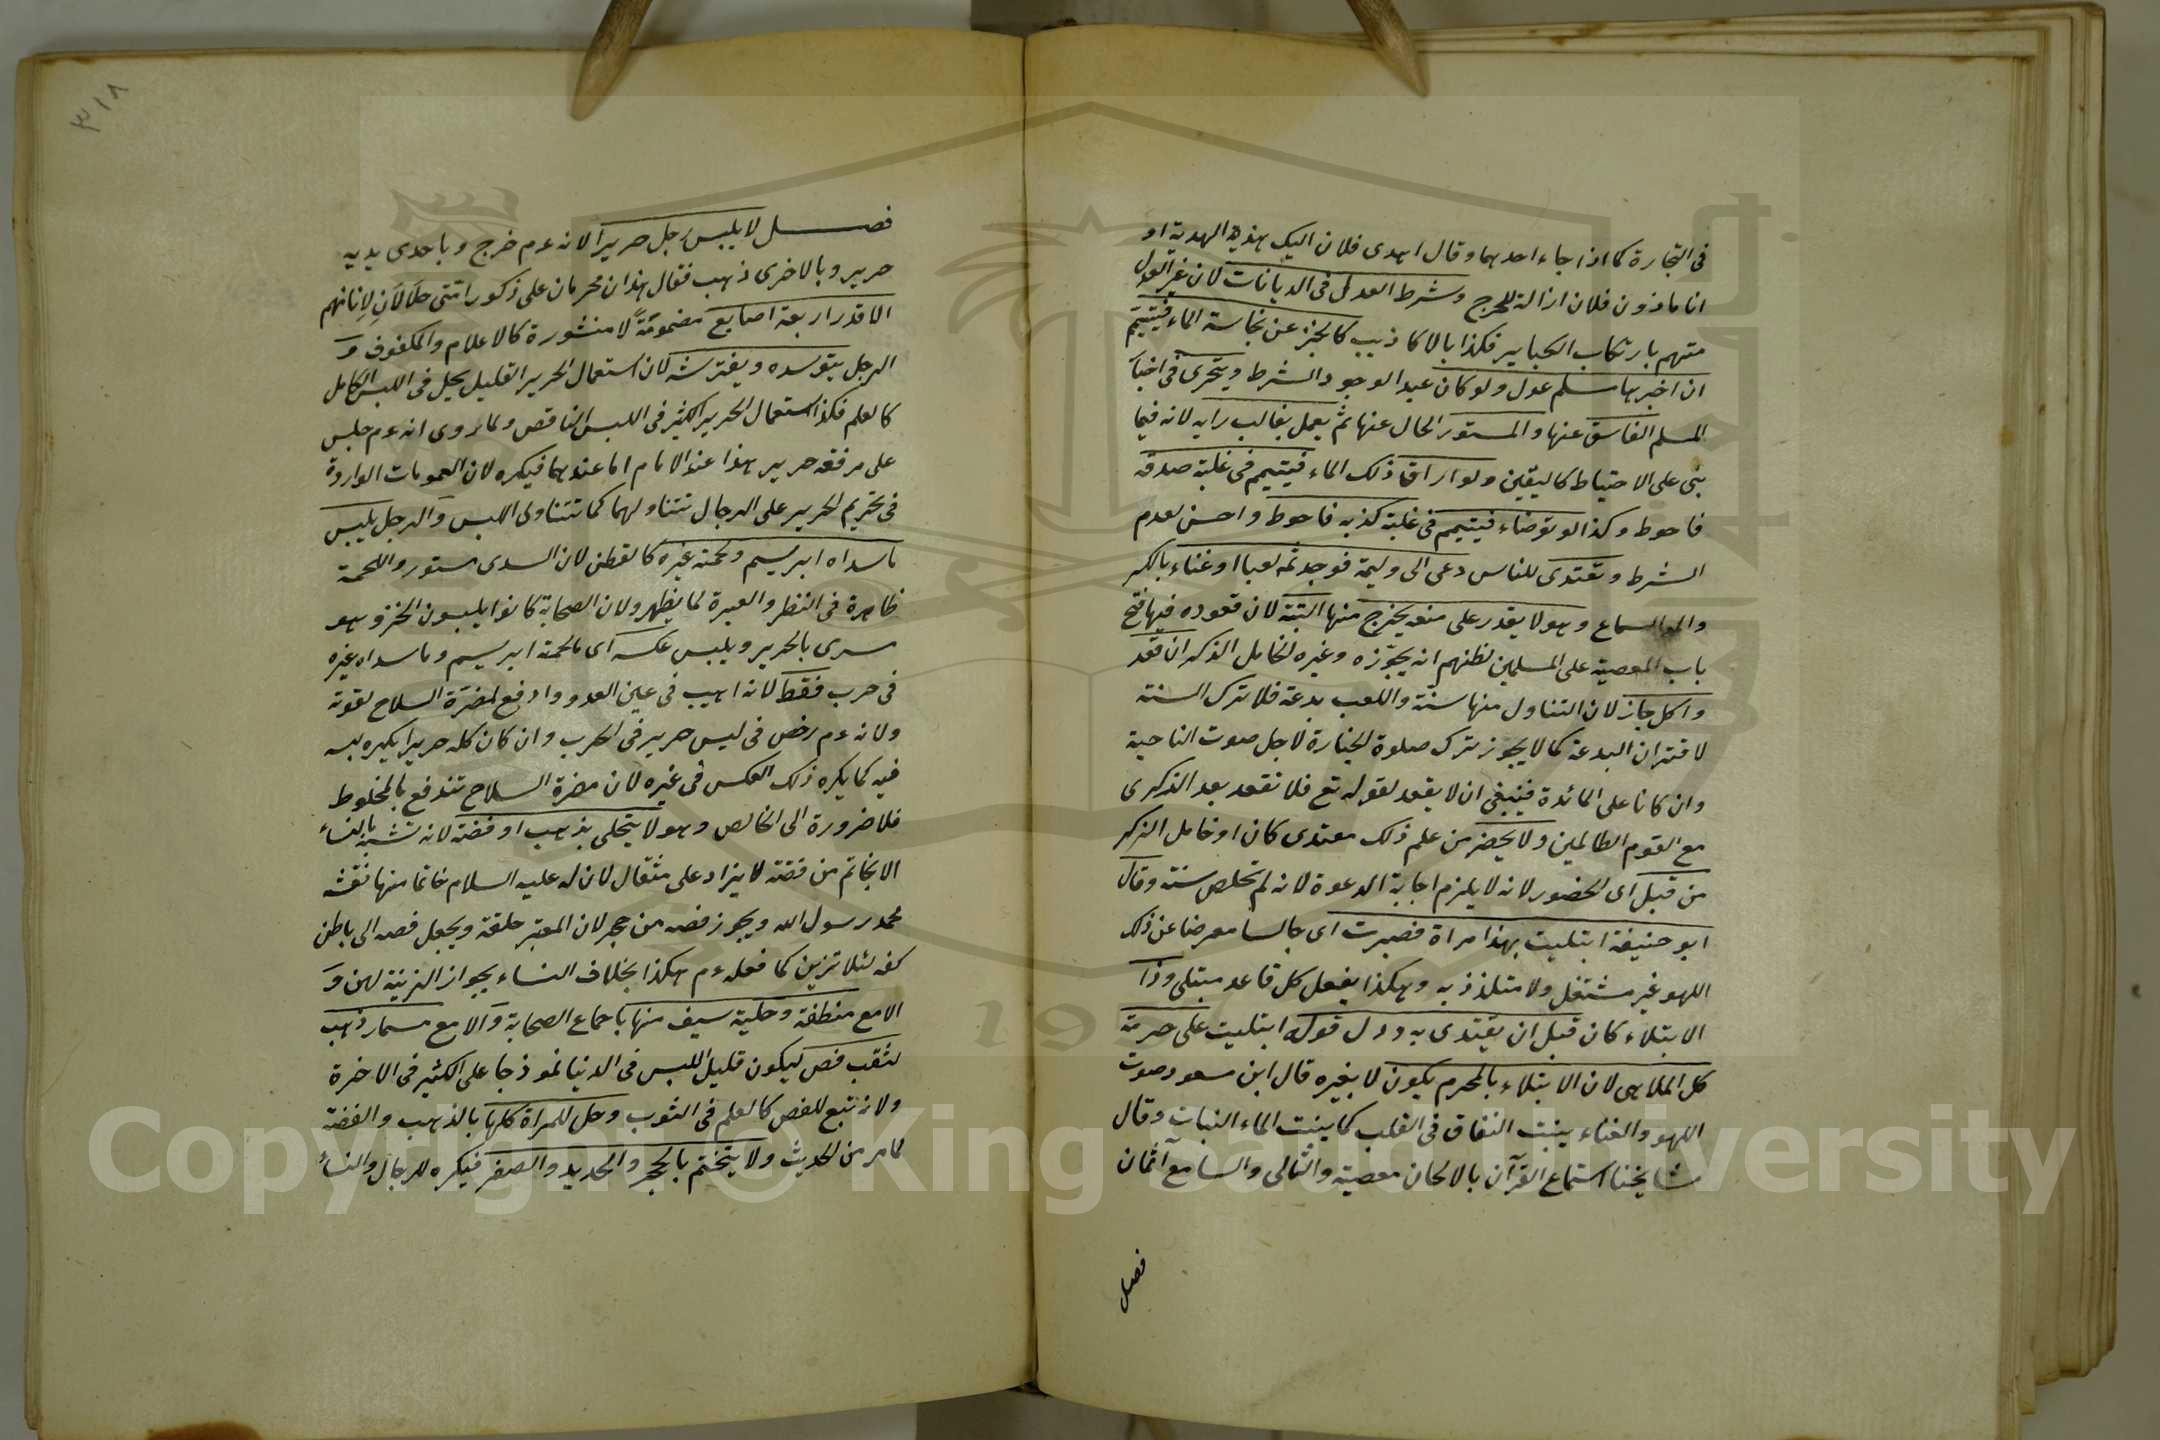 في التجارة كما اذا جاء احدهما وقال اهدى فلان اليك بهذه الهدية او
انا ماذون فلان ازالة للحرج وشرط العدل في الديانات لان غير العدل
متهم بارتكاب الكبايير فكذا بالاكاذيب كالخبر عن نجاسة الماء فيتيمم
ان اخبر بها مسلم عدل ولو كان عبدا لوجود الشرط ويتحرى في اخبار
المسلم الفاسق عنها والمستور الحال عنها ثم يعمل بغالب رايه لانه فيما
بنى على الاحتياط كاليقين ولو اراق ذلك الماء فيتيمم في غلبة صدقه
فاحوط وكذا لو توضاء فيتيمم في غلبة كذبه فاحوط واحسن لعدم
الشرط ومقتدى للناس دعى الى وليمة فوجد ثمه لعبا او غناء بالكسر
والمد السماع وهو لا يقدر على منعه يخرج منها البتة لان قعوده فيها فتح
باب المعصية على المسلمين لظنهم انه يجوّزه وغيره لخامل الذكر ان قعد
واكل جاز لان التناول منها سنة واللعب بدعة فلا تترك السنة
لاقتران البدعة كما لا يجوز ترك صلوة الجنازة لاجل صوت الناحية
وان كانا على المائدة فينبغي ان لا يقعد لقوله تع فلا تقعد بعد الذكرى
مع القوم الظالمين ولا يحضر من علم ذلك مقتدى كان او خامل الذكر
من قبل اى الحضور لانه لا يلزم اجابة الدعوة لانه لم تخلص سنة وقال
ابو حنيفة ابتليت بهذا مراة فصبرت اى جالسا معرضا عن ذلك
اللهو غير مشتغل ولا متلذذ به وهكذا يفعل كل قاعد مبتلى وذا
الابتلاء كان قبل ان يقتدى به ودل قوله ابتليت على حرمة
كل الملاهى لان الابتلاء بالمحرم يكون لا بغيره قال ابن مسعود صوت
اللهو والغناء ينبت النفاق في القلب كما ينبت الماء النبات وقال
مشايخنا استماع القرآن بالالحان معصية والتالى والسامع آثمان
فصل
٣١٨
فصل لا يلبس رجل حريرا لانه ءم خرج وباحدى يديه
حرير وبالاخرى ذهب فقال هذان محرمان على ذكور امتى حلالان لاناثهم
الا قدر اربعة اصابع مضمومة لا منشورة كالاعلام والمكفوف و
الرجل يتوسده ويفترشه لان استعمال الحرير القليل يحل في اللبس الكامل
كالعلم فكذا استعمال الحرير الكثير في اللبس الناقص ولما روى انه ءم جلس
على مرفقه حرير هذا عند الامام اما عندهما فيكره لان العمومات الواردة
في تحريم الحرير على الرجال تتناولهما كما تتناول اللبس والرجل يلبس
ما سداه ابريسم ولحمته غيره كالقطن لان السدى مستور واللحمة
ظاهرة في النظر والعبرة لما يظهر ولان الصحابة كانوا يلبسون الخز وهو
مسدى بالحرير ويلبس عكسه اى ما لحمته ابريسم وما سداه غيره
في حرب فقط لانه اهيب في عين العدو وادفع لمضرة السلاح لقوته
ولانه ءم رخص في لبس حرير في الحرب وان كان كله حريرا يكره لبسه
فيه كما يكره ذلك العكس في غيره لان مضرة السلاح تندفع بالمخلوط
فلا ضرورة الى الخالص وهو لا يتحلى بذهب او فضة لانه تشبه بالنساء
الا بخاتم من فضة لا يزاد على مثقال لان له عليه السلام خاتما منها نقشه
محمد رسول الله ويجوز فصه من حجر لان المعتبر حلقة ويجعل فصه الى باطن
كفه لئلا تزين كما فعله ءم هكذا بخلاف النساء بجواز الزينة لهن و
الا مع منطقة وحلية سيف منها باجماع الصحابة والا مع مسمار ذهب
لثقب فص ليكون قليل اللبس في الدنيا نموذجا على الكثير في الاخرة
ولانه تبع للفص كالعلم في الثوب وحل للمراة كلها بالذهب والفضة
لما مر من الحديث ولا يتختم بالحجر والحديد والصفر فيكره للرجال والنساء
Copyright © King Saud University
19